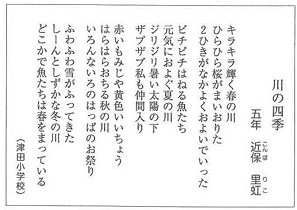 川の四季
五年 近保 里虹
こんぽ りこ
キラキラ輝く春の川
ひらひら桜がまいおりた
2ひきがなかよくおよいでいった
ピチピチはねる魚たち
元気におよぐ夏の川
ジリジリ暑い太陽の下
ザブザブ私も仲間入り
赤いもみじや黄色いいちょう
はらはらおちる秋の川
いろんないろのはっぱのお祭り
ふわふわ雪がふってきた
しーんとしずかな冬の川
どこかで魚たちは春をまっている
(津田小学校)